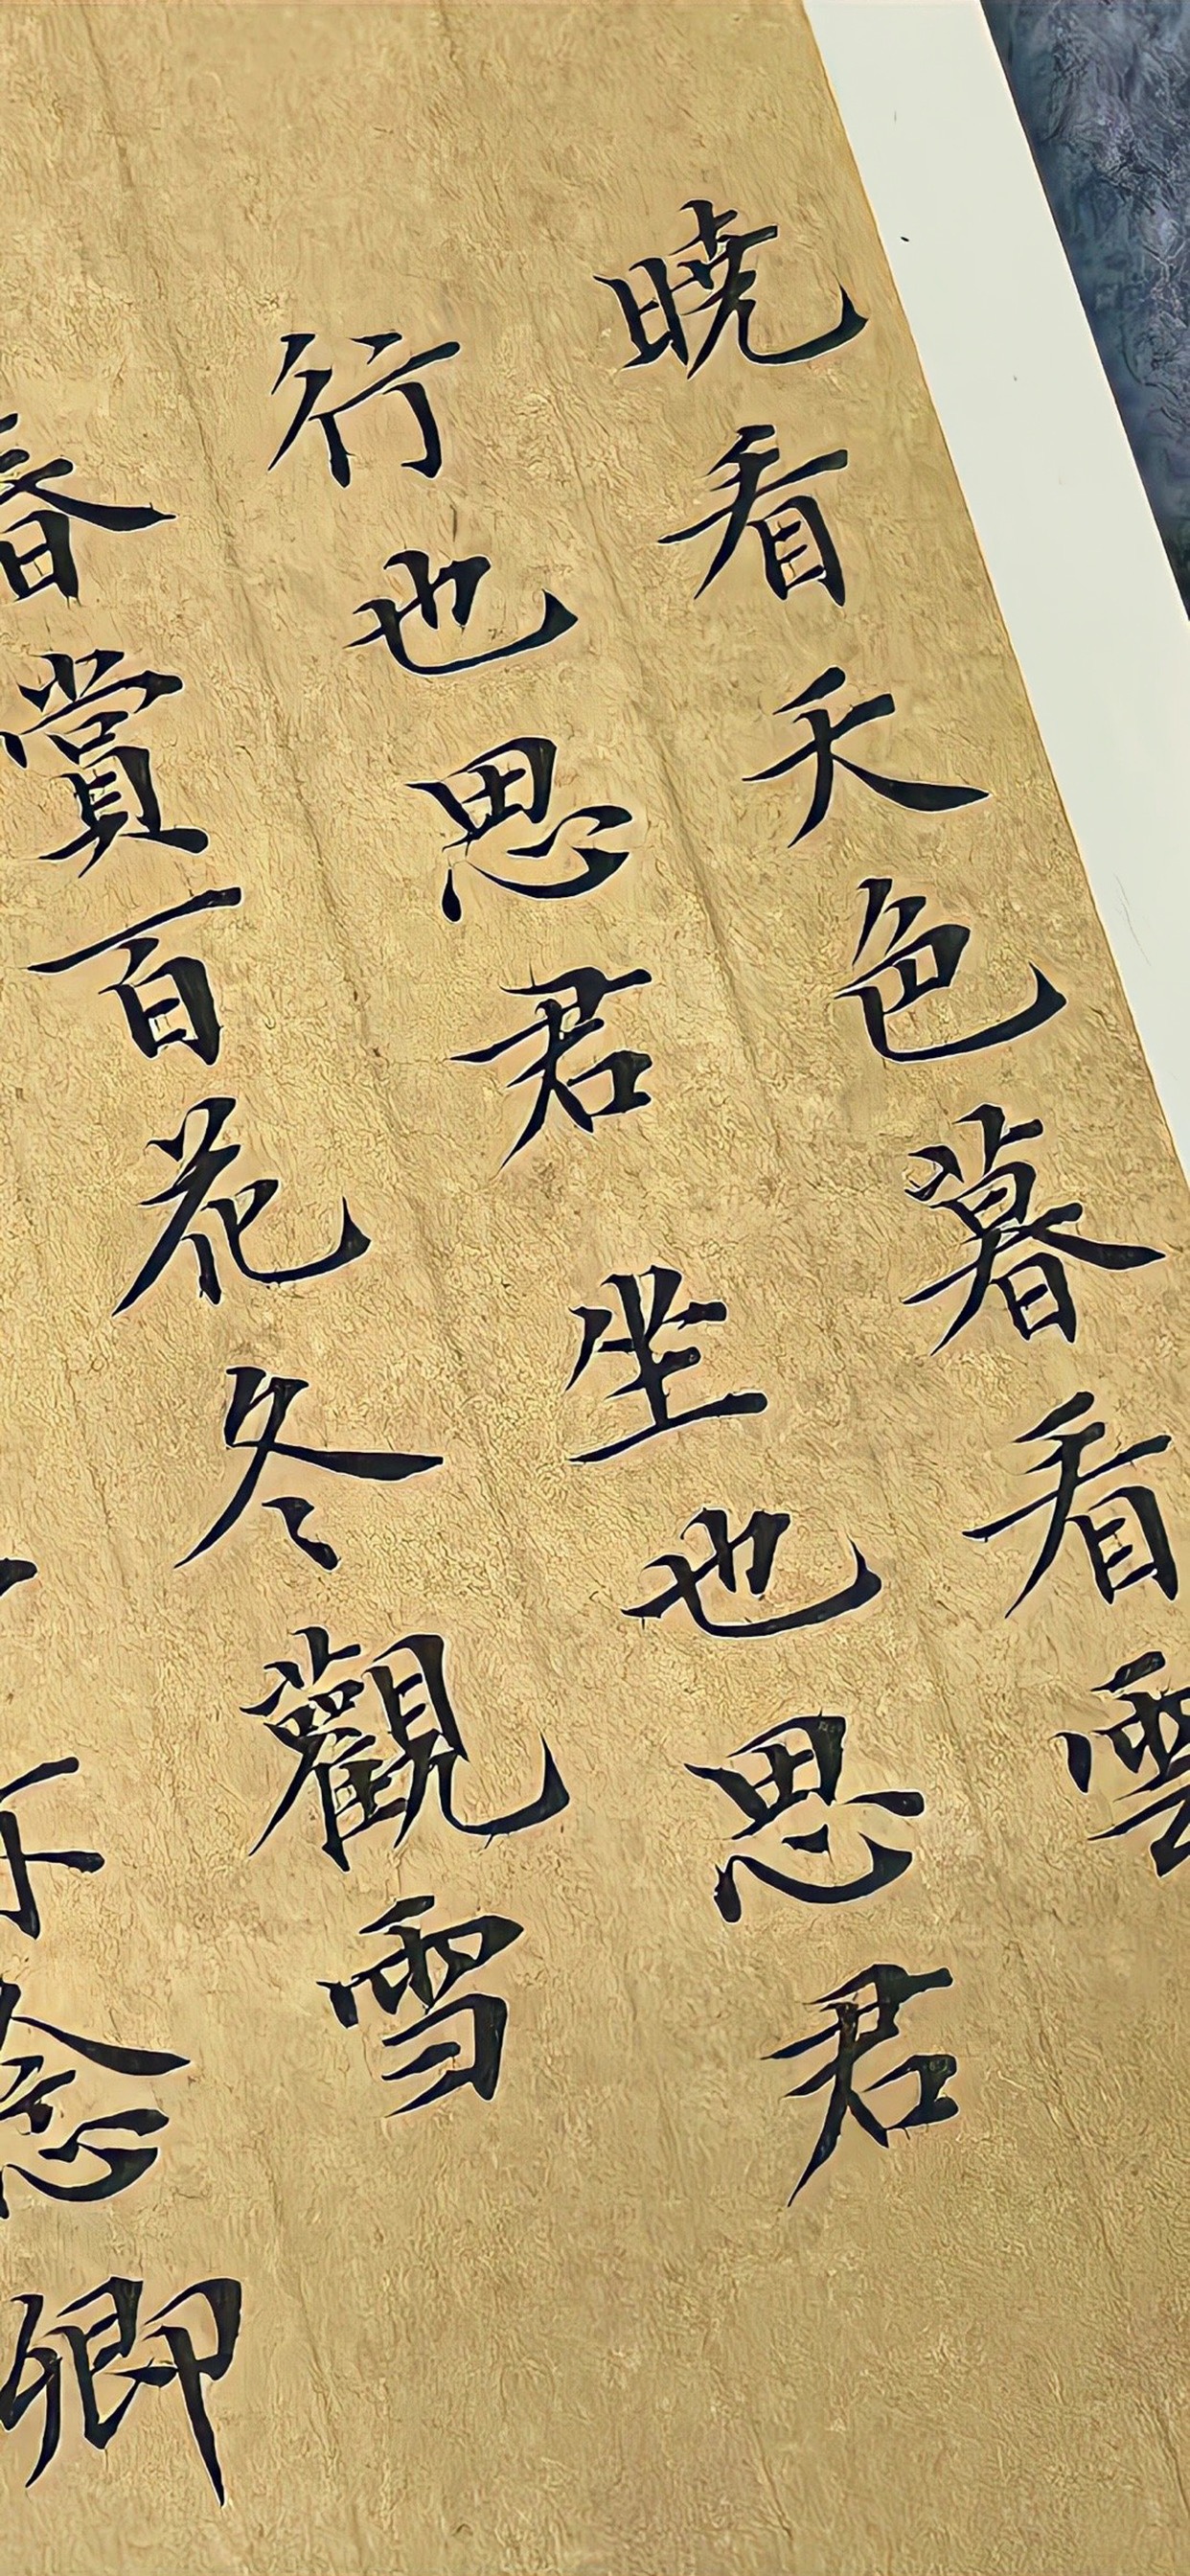 晓看天色暮看雲
行也思君坐也思君
春賞百花冬觀雪
念卿